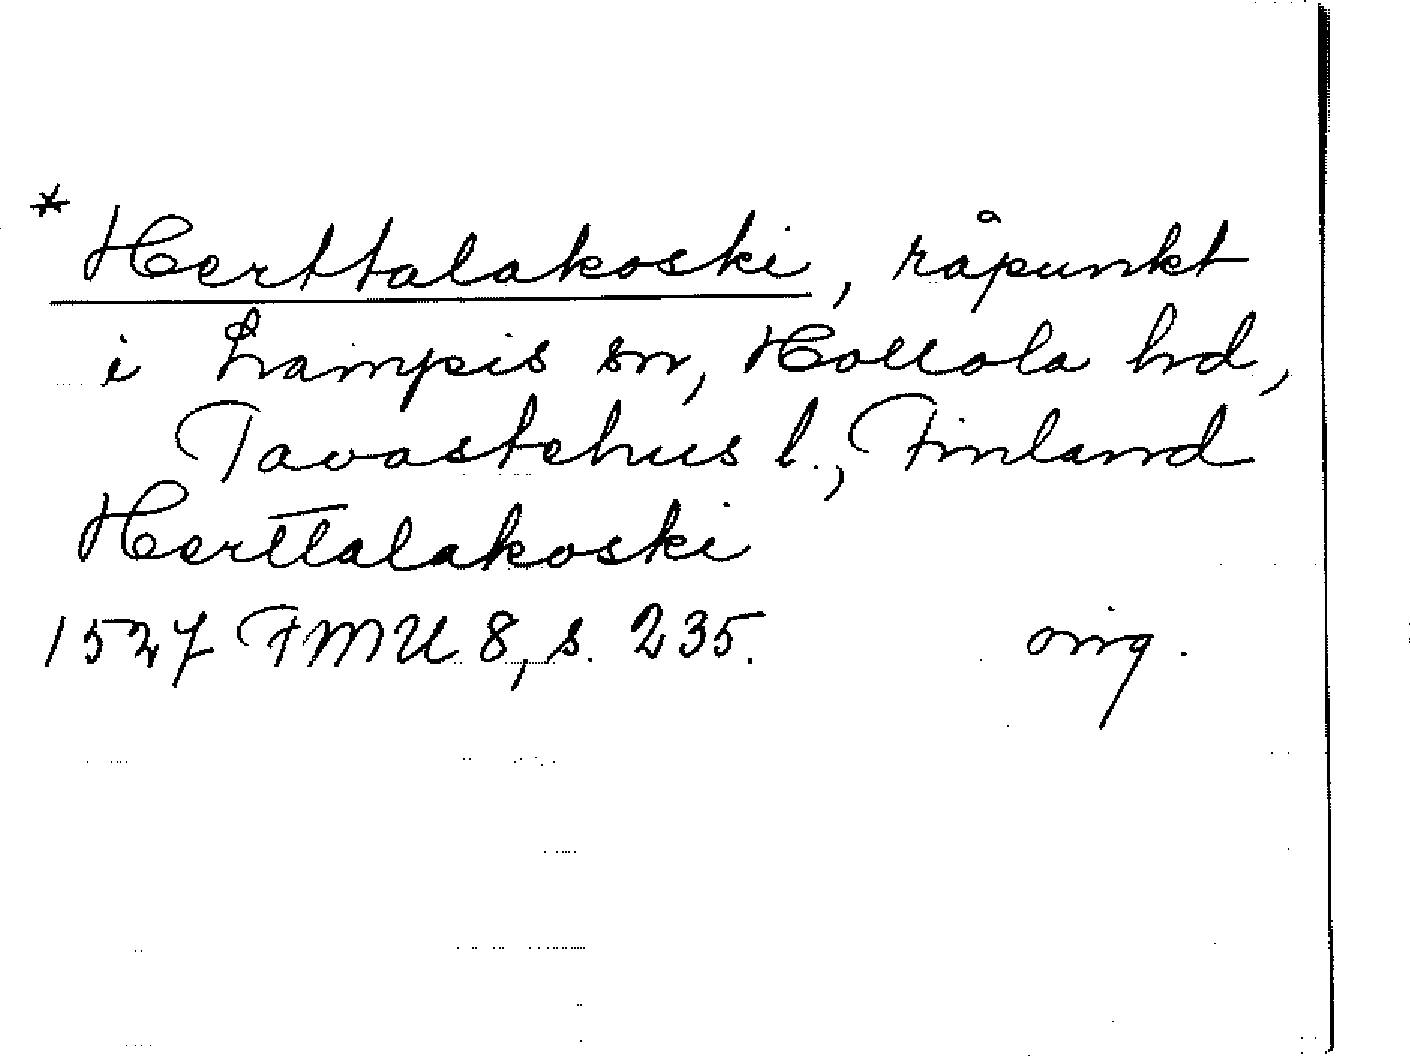 * Herttalakoski, råpunkt
i Lampis sn, Hollola hd,
Tavastehus l., Finland
Herttalakoski
1527 FMU 8, s. 235. orig.